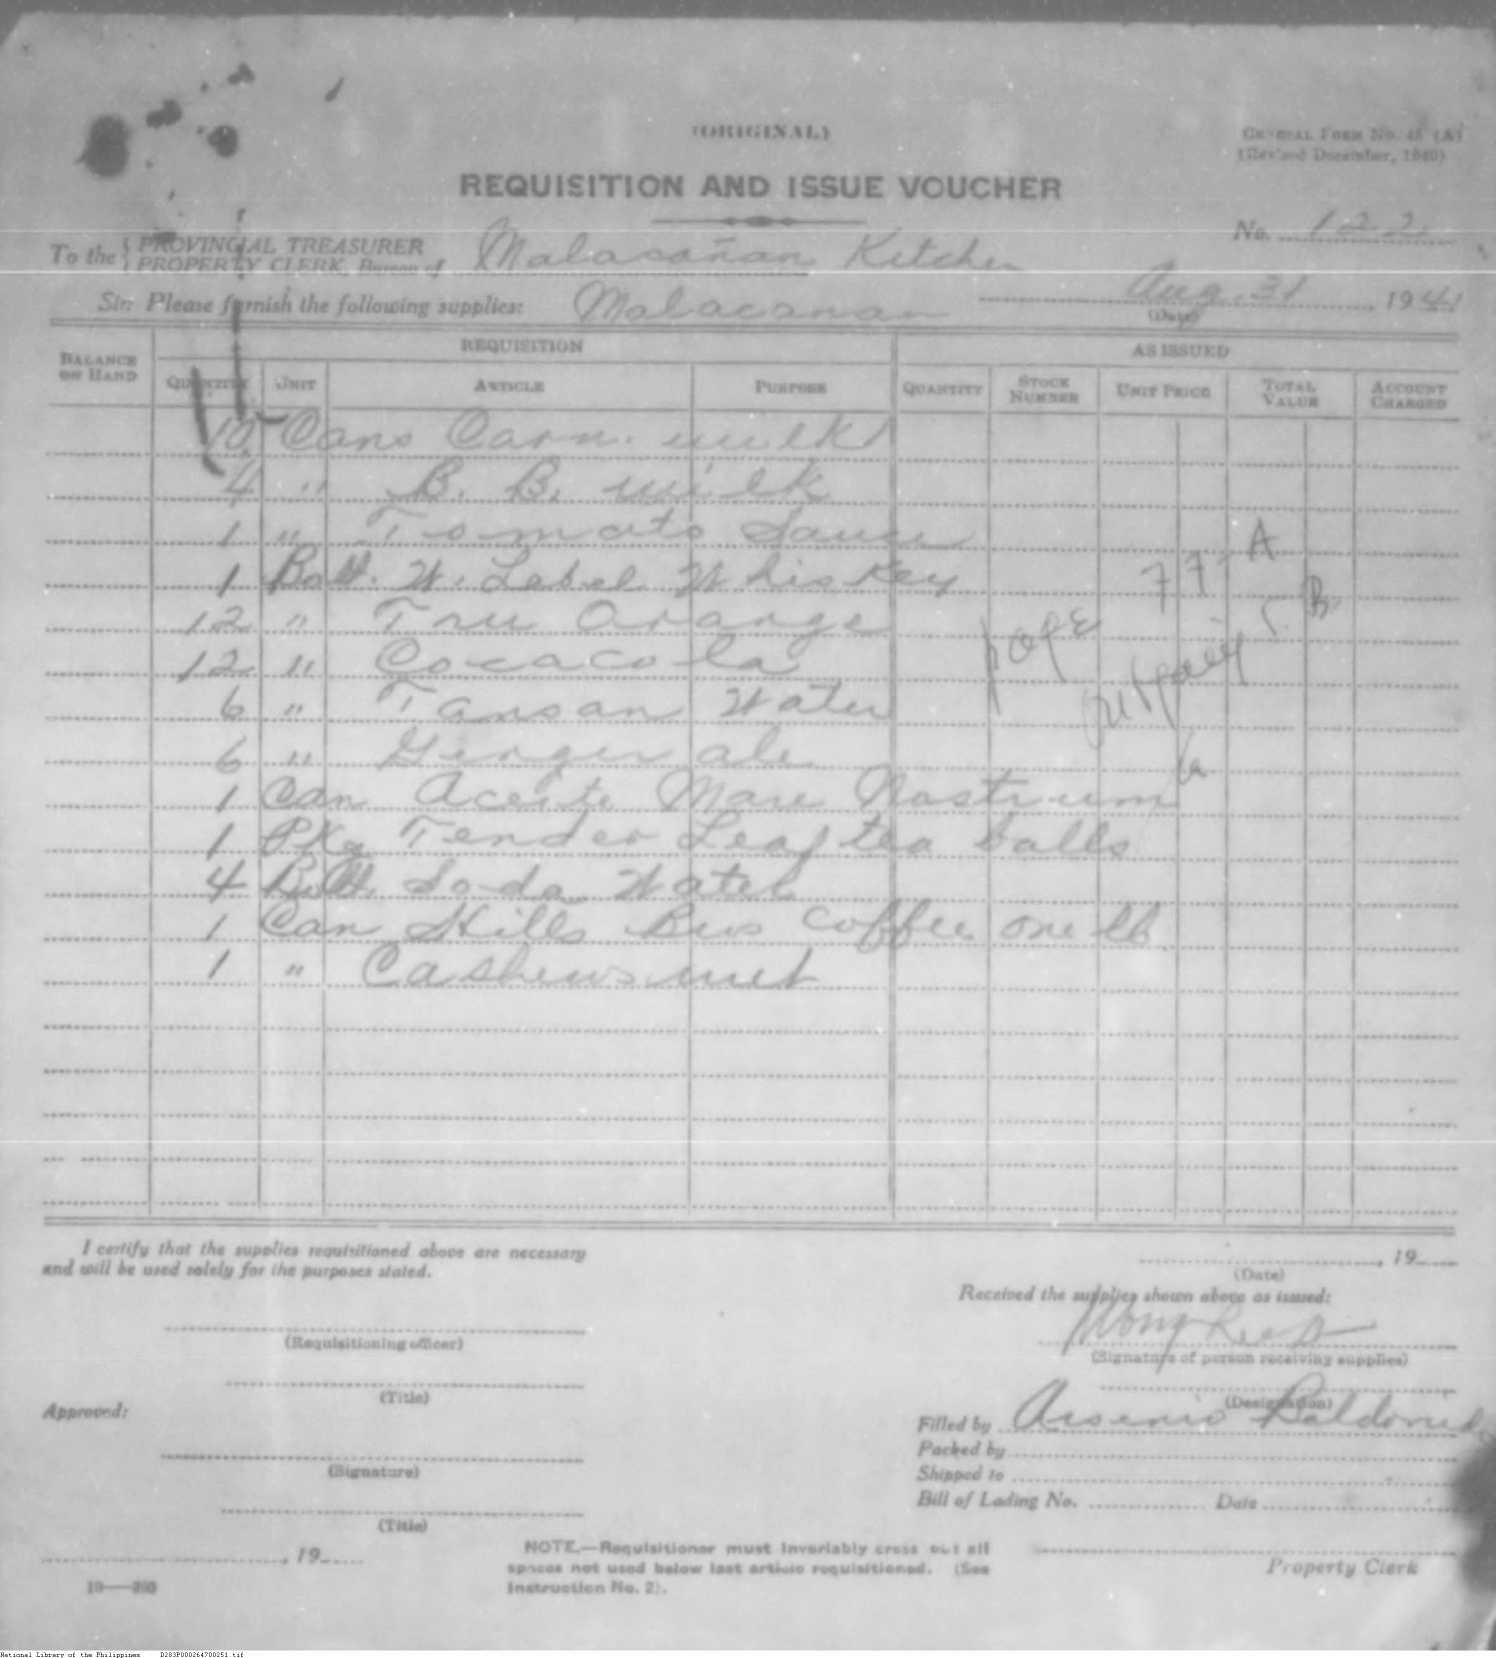 (ORIGINAL)
GENERAL FORM NO. 45 (A)
(Revised December, 1940)
REQUISITION AND ISSUE VOUCHER
No. 122
To the { PROVINCIAL TREASURER
PROPERTY CLERK, Bureau of Malacañan Kitchen
Aug. 31 1941
(Date)
Sir: Please furnish the following supplies: Malacanan
BALANCE ON HAND
REQUISITION
AS ISSUED
QUANTITY UNIT ARTICLE PURPOSE QUANTITY STOCK NUMBER UNIT PRICE TOTAL VALUE ACCOUNT CHARGED
10 Cans Carn. milk
4 " B. B. milk
1 " Tomato Sauce
1 Bott. W. Label Whiskey
12 " Tru Orange
12 " Cocacola
6 " Tansan Water
6 " Ginger ale
1 Can Aceite Mare Nostrum
1 Pkg Tender Leaf tea balls
4 Bott. Soda Water
1 Can Hills Bros coffee one lb
1 " Cashews nut
page 77-A
B.
I certify that the supplies requisitioned above are necessary
and will be used solely for the purposes stated.
, 19
(Date)
Received the supplies shown above as issued:
(Requisitioning officer)
(Signature of person receiving supplies)
(Title)
(Designation)
Approved:
Filled by Arsenio Baldonido
Packed by
(Signature)
Shipped to
Bill of Lading No. Date
(Title)
, 19
NOTE.—Requisitioner must invariably cross out all
spaces not used below last article requisitioned. (See
Instruction No. 2).
Property Clerk
National Library of the Philippines D283P000264700251.tif